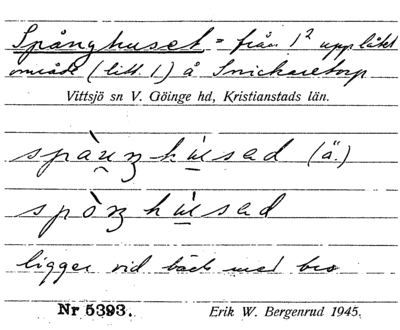 Spånghuset = från 1² upplåtet
område (litt. 1) å Snickaretorp
Vittsjö sn V. Göinge hd, Kristianstads län.
(ä.)
ligger vid bäck med bro
Nr 5393. Erik W. Bergenrud 1945.